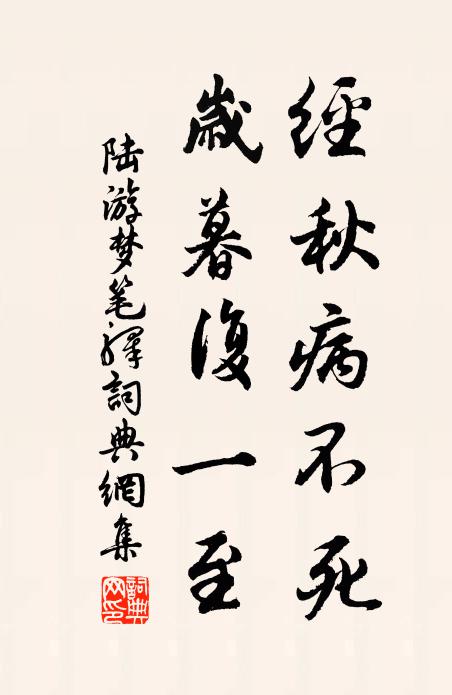 經秋病不死
歲暮復一至
陆游梦笔驛詞典網集
詞典網印